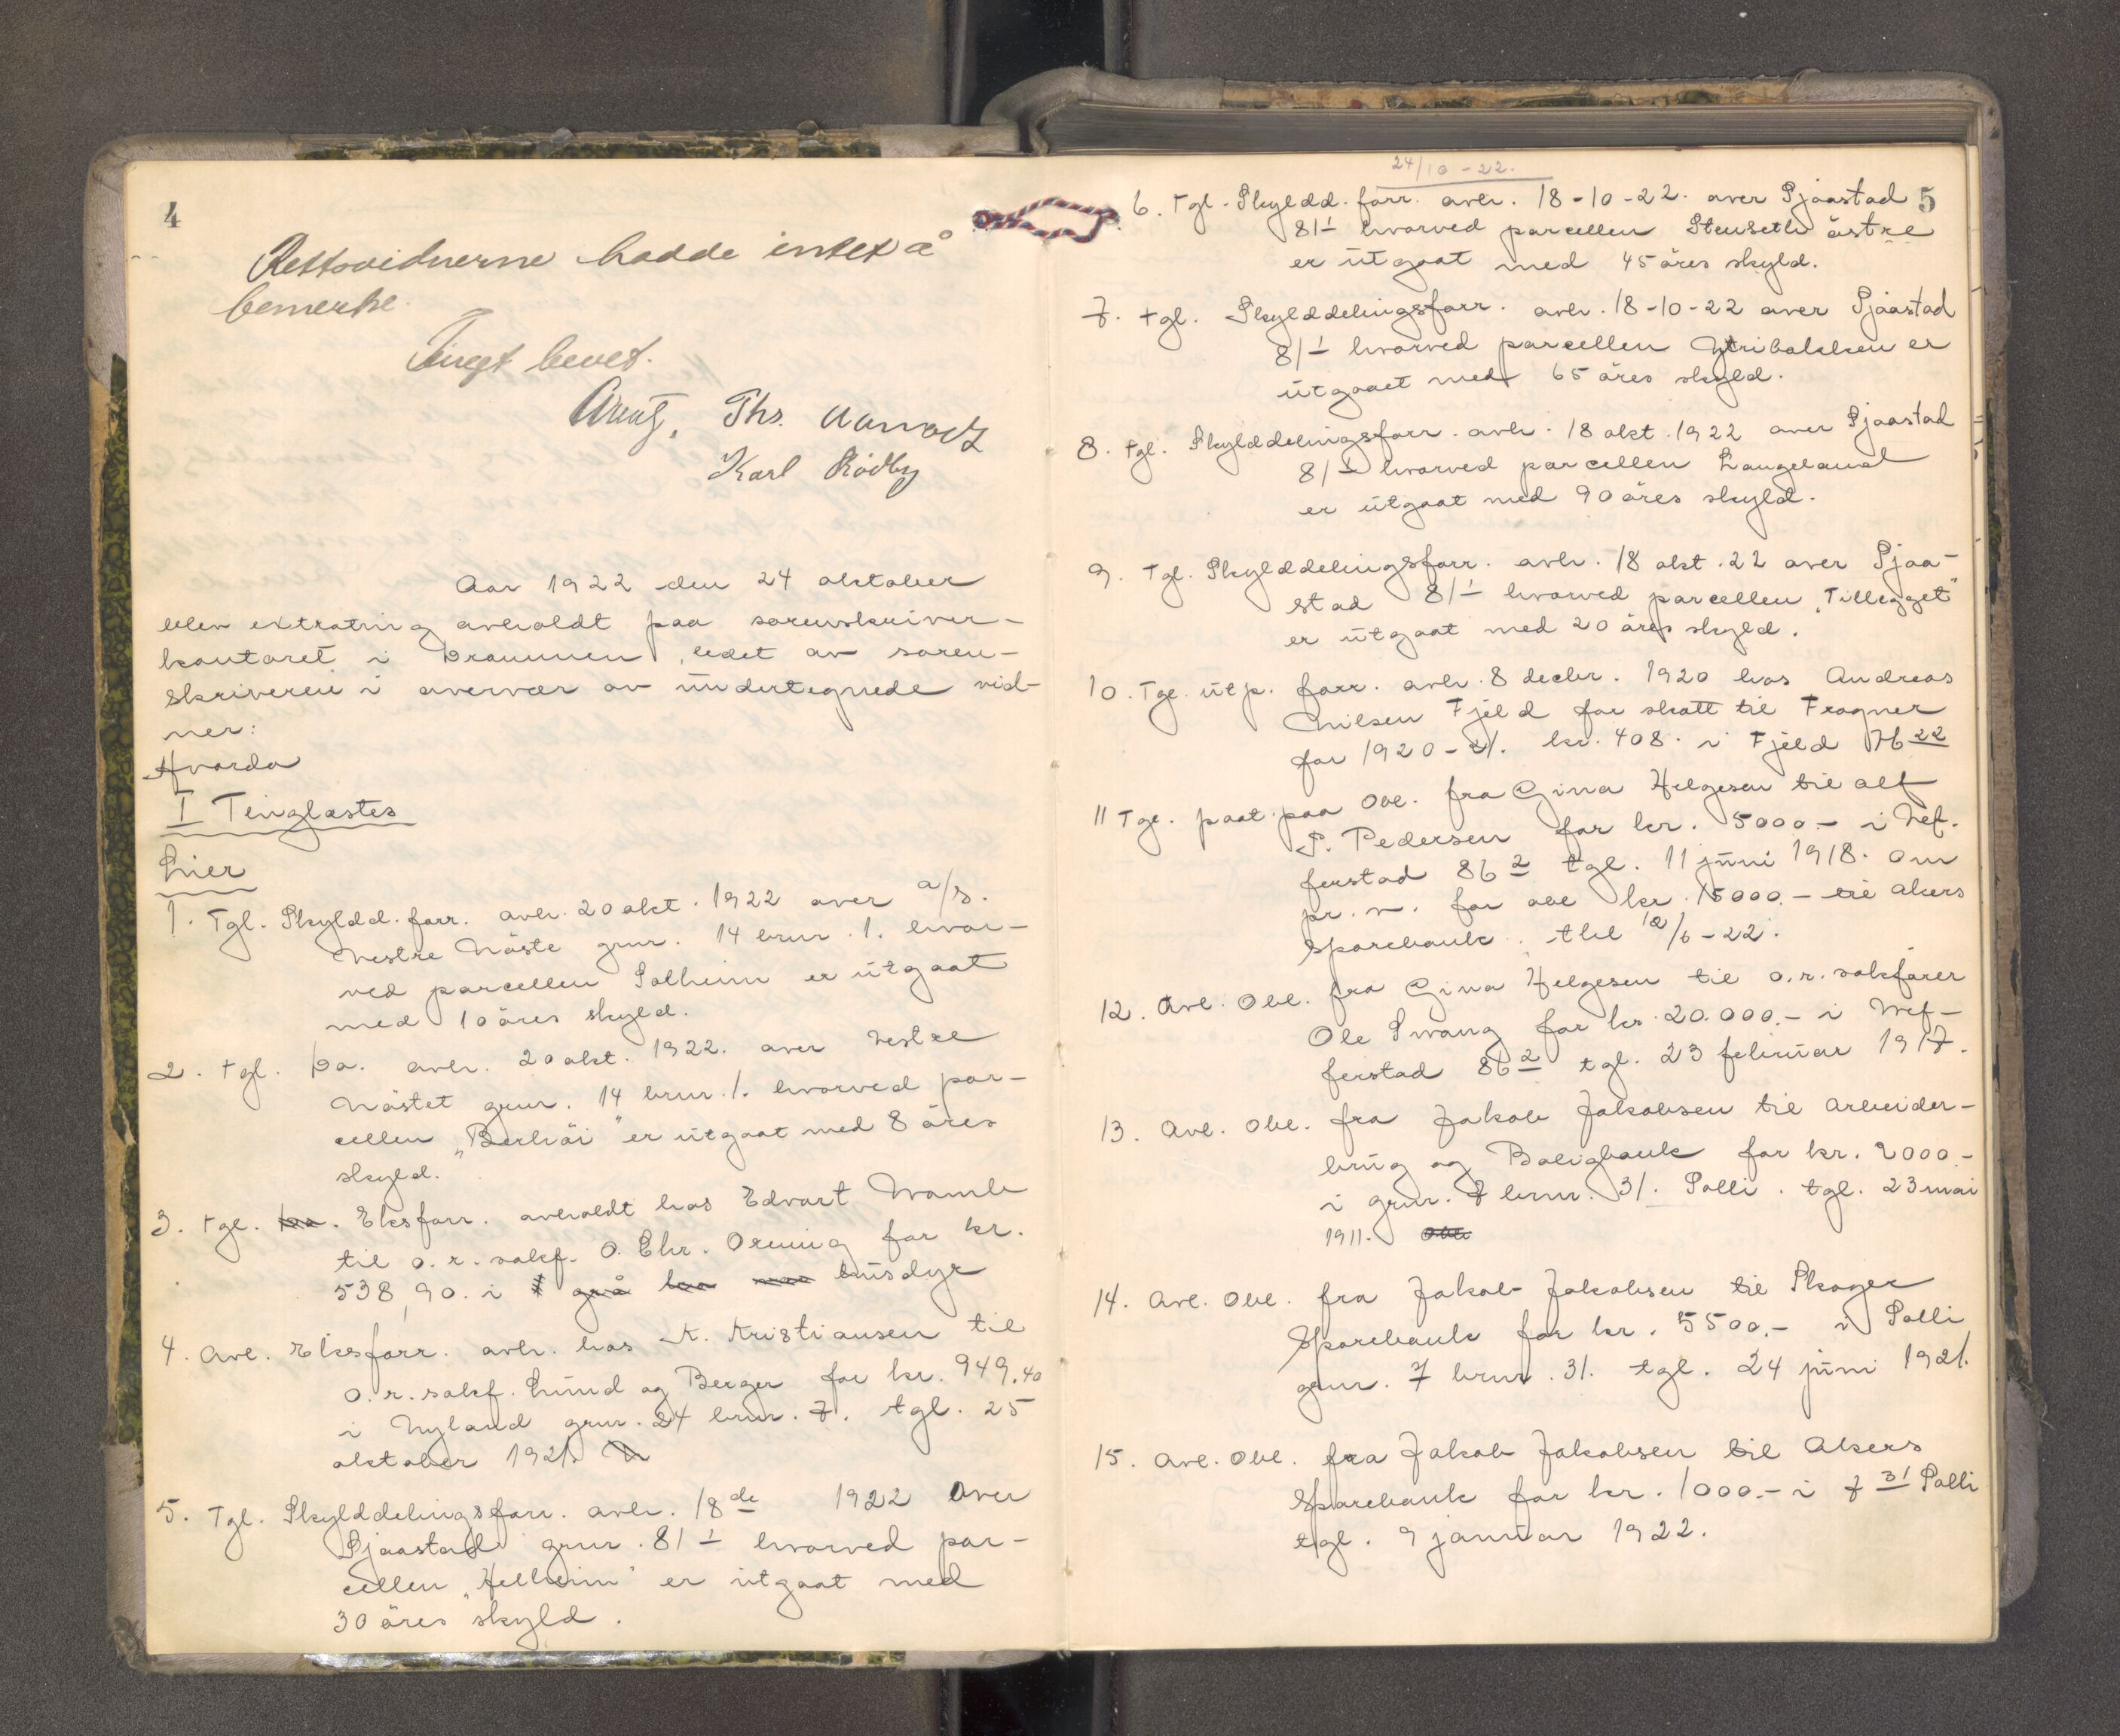 4
Rettsvidnerne hadde intet å
bemerke.
Tinget hevet.
Ths.
Karl Rödby
Aar 1922 den 24 oktober
blev extrating avholdt paa sorenskriver-
kontoret i Drammen, ledet av soren-
skriveren i overvær av undertegnede vid-
ner:
Hvorda
I Tinglæstes
Lier
1. Tgl. Skyldd. forr. avh. 20 okt. 1922 over a/s.
Vestre Nöste gnr. 14 brnr. 1. hvor-
ved parcellen Solheim er utgaat
med 10 öres skyld.
2. Tgl. Do. avh. 20 okt. 1922. over Vestre
Nöstet gnr. 14 brnr. 1. hvorved par-
cellen „Berhöi" er utgaat med 8 öres
skyld.
3. Tgl. Eksforr. avholdt hos Edvart Wamli
til o.r. sakf. O. Chr. Orning for kr.
538,90. i husdyr
4. Avl. Eksforr. avh. hos K. Kristiansen til
o.r. sakf. Lund og Berger for kr. 949.40
i Nyland gnr. 24 brnr. 7. tgl. 25
oktober 1921.
5. Tgl. Skylddelingsforr. avh. 18de 1922 over
Sjaastad gnr. 81 1 hvorved par-
cellen „Helheim" er utgaat med
30 öres skyld.
24/10-22.
5
6. Tgl. Skyldd. forr. avh. 18-10-22. over Sjaastad
81 1 hvorved parcellen Stenseth östre
er utgaat med 45 öres skyld.
7. Tgl. Skylddelingsforr. avh. 18-10-22 over Sjaastad
81 1 hvorved parcellen er
utgaaet med 65 öres skyld.
8. Tgl. Skylddelingsforr. avh. 18 okt. 1922 over Sjaastad
81 1 hvorved parcellen Langeland
er utgaat med 90 öres skyld.
9. Tgl. Skylddelingsforr. avh. 18 okt. 22 over Sjaa-
stad 81 1 hvorved parcellen „Tillegget"
er utgaat med 20 öres skyld.
10. Tgl. utp. forr. avh. 8 decbr. 1920 hos Andreas
Nilsen Fjeld for skatt til Frogner
for 1920-21. kr. 408. i Fjeld 76 22
11 Tgl. paat. paa Obl. fra Gina Helgesen til Alf
S. Pedersen for kr. 5000.- i Vef-
ferstad 86 2 tgl. 11 juni 1918. om
pr. v. for obl kr. 15000.- til Akers
Sparebank. tbl 12/6-22.
12. Avl. Obl. fra Gina Helgesen til o.r. sakförer
Ole Svang for kr. 20.000.- i Vef-
ferstad 86 2 tgl. 23 februar 1917.
13. Avl. Obl. fra Jakob Jakobsen til Arbeider-
brug og Boligbank for kr. 2000.-
i gnr. 7 brnr. 31. Solli. tgl. 23 mai
1911.
14. Avl. Obl. fra Jakob Jakobsen til Skoger
Sparebank for kr. 5500.- i Solli
gnr. 7 brnr. 31. tgl. 24 juni 1921.
15. Avl. Obl. fra Jakob Jakobsen til Akers
Sparebank for kr. 1000.- i 7 31 Solli
tgl. 9 januar 1922.